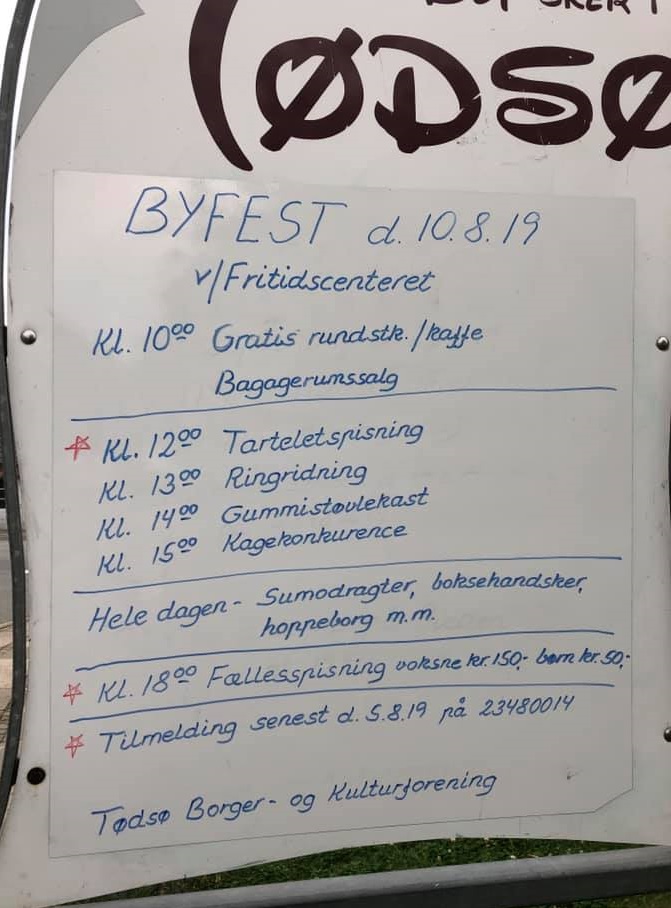 ØDSØ
BYFEST d. 10.8.19
v/Fritidscenteret
Kl. 10⁰⁰ Gratis rundstk./kaffe
Bagagerumssalg
☆ Kl. 12⁰⁰ Tarteletspisning
Kl. 13⁰⁰ Ringridning
Kl. 14⁰⁰ Gummistøvlekast
Kl. 15⁰⁰ Kagekonkurence
Hele dagen - Sumodragter, boksehandsker,
hoppeborg m.m.
☆ Kl. 18⁰⁰ Fællesspisning voksne kr. 150,- børn kr. 50,-
☆ Tilmelding senest d. 5.8.19 på 23480014
Tødsø Borger- og Kulturforening